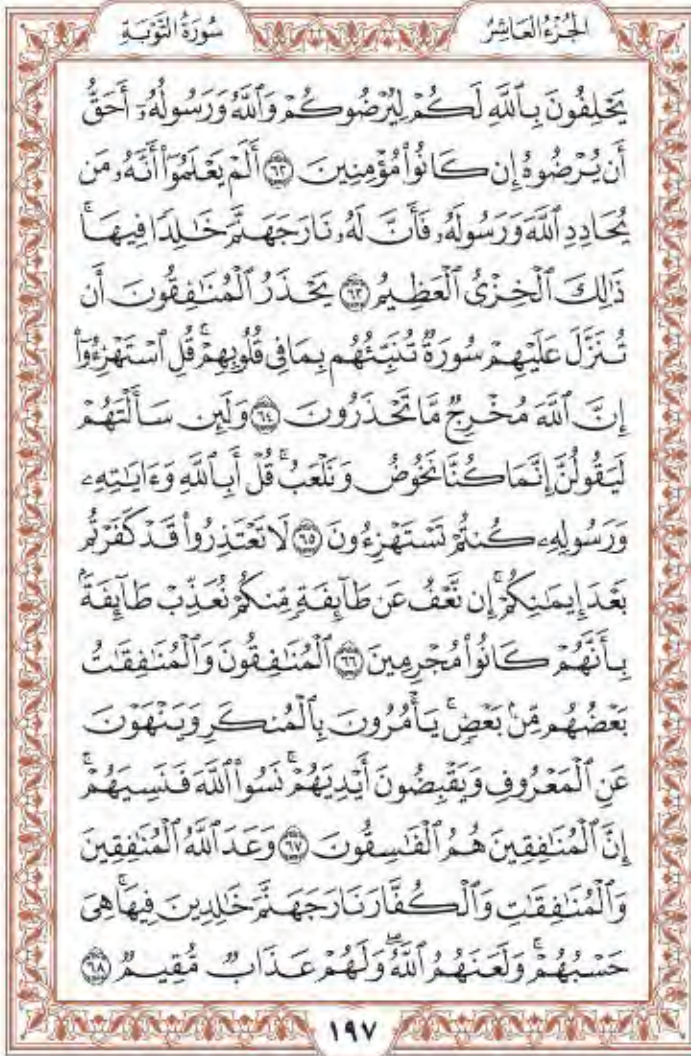 الجُزْءُ العَاشِرُ
سُورَةُ التَّوْبَةِ
يَحْلِفُونَ بِٱللَّهِ لَكُمْ لِيُرْضُوكُمْ وَٱللَّهُ وَرَسُولُهُۥٓ أَحَقُّ
أَن يُرْضُوهُ إِن كَانُواْ مُؤْمِنِينَ ٦٢ أَلَمْ يَعْلَمُوٓاْ أَنَّهُۥ مَن
يُحَادِدِ ٱللَّهَ وَرَسُولَهُۥ فَأَنَّ لَهُۥ نَارَ جَهَنَّمَ خَٰلِدًا فِيهَاۚ
ذَٰلِكَ ٱلْخِزْىُ ٱلْعَظِيمُ ٦٣ يَحْذَرُ ٱلْمُنَٰفِقُونَ أَن
تُنَزَّلَ عَلَيْهِمْ سُورَةٌ تُنَبِّئُهُم بِمَا فِى قُلُوبِهِمْۚ قُلِ ٱسْتَهْزِءُوٓاْ
إِنَّ ٱللَّهَ مُخْرِجٌ مَّا تَحْذَرُونَ ٦٤ وَلَئِن سَأَلْتَهُمْ
لَيَقُولُنَّ إِنَّمَا كُنَّا نَخُوضُ وَنَلْعَبُۚ قُلْ أَبِٱللَّهِ وَءَايَٰتِهِۦ
وَرَسُولِهِۦ كُنتُمْ تَسْتَهْزِءُونَ ٦٥ لَا تَعْتَذِرُواْ قَدْ كَفَرْتُم
بَعْدَ إِيمَٰنِكُمْۚ إِن نَّعْفُ عَن طَآئِفَةٍ مِّنكُمْ نُعَذِّبْ طَآئِفَةَۢ
بِأَنَّهُمْ كَانُواْ مُجْرِمِينَ ٦٦ ٱلْمُنَٰفِقُونَ وَٱلْمُنَٰفِقَٰتُ
بَعْضُهُم مِّنۢ بَعْضٍۚ يَأْمُرُونَ بِٱلْمُنكَرِ وَيَنْهَوْنَ
عَنِ ٱلْمَعْرُوفِ وَيَقْبِضُونَ أَيْدِيَهُمْۚ نَسُواْ ٱللَّهَ فَنَسِيَهُمْۚ
إِنَّ ٱلْمُنَٰفِقِينَ هُمُ ٱلْفَٰسِقُونَ ٦٧ وَعَدَ ٱللَّهُ ٱلْمُنَٰفِقِينَ
وَٱلْمُنَٰفِقَٰتِ وَٱلْكُفَّارَ نَارَ جَهَنَّمَ خَٰلِدِينَ فِيهَاۚ هِىَ
حَسْبُهُمْۚ وَلَعَنَهُمُ ٱللَّهُۖ وَلَهُمْ عَذَابٌ مُّقِيمٌ ٦٨
١٩٧